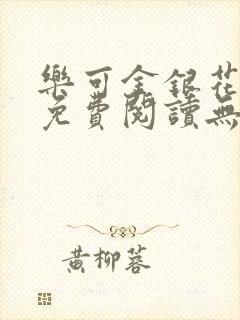 樂可金銀花
免費閱讀無
黃柳蓉